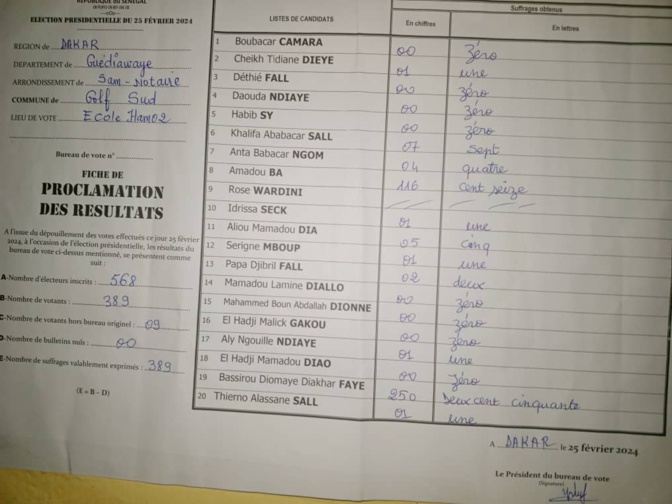 REPUBLIQUE DU SENEGAL
ELECTION PRESIDENTIELLE DU 25 FÉVRIER 2024
REGION de DAKAR
DEPARTEMENT de Guédiawaye
ARRONDISSEMENT de Sam - Notaire
COMMUNE de Golf Sud
LIEU DE VOTE Ecole Hamo2
Bureau de vote n°
FICHE DE
PROCLAMATION
DES RESULTATS
A l'issue du dépouillement des votes effectués ce jour 25 février
2024, à l'occasion de l'élection présidentielle, les résultats du
bureau de vote ci-dessus mentionné, se présentent comme
suit :
A-Nombre d'électeurs inscrits : 568
B-Nombre de votants : 389
C-Nombre de votants hors bureau originel : 09
D-Nombre de bulletins nuls : 00
E-Nombre de suffrages valablement exprimés : 389
(E = B – D)
LISTES DE CANDIDATS
Suffrages obtenus
En chiffres
En lettres
1 Boubacar CAMARA 00 Zéro
2 Cheikh Tidiane DIEYE 01 une
3 Déthié FALL 00 zéro
4 Daouda NDIAYE 00 zéro
5 Habib SY 00 zéro
6 Khalifa Ababacar SALL 07 Sept
7 Anta Babacar NGOM 04 quatre
8 Amadou BA 116 cent seize
9 Rose WARDINI
10 Idrissa SECK 01 une
11 Aliou Mamadou DIA 05 Cinq
12 Serigne MBOUP 01 une
13 Papa Djibril FALL 02 deux
14 Mamadou Lamine DIALLO 00 zéro
15 Mahammed Boun Abdallah DIONNE 00 zéro
16 El Hadji Malick GAKOU 00 zéro
17 Aly Ngouille NDIAYE 01 une
18 El Hadji Mamadou DIAO 00 Zéro
19 Bassirou Diomaye Diakhar FAYE 250 Deux cent cinquante
20 Thierno Alassane SALL 01 une
A DAKAR le 25 février 2024
Le Président du bureau de vote
(Signature)